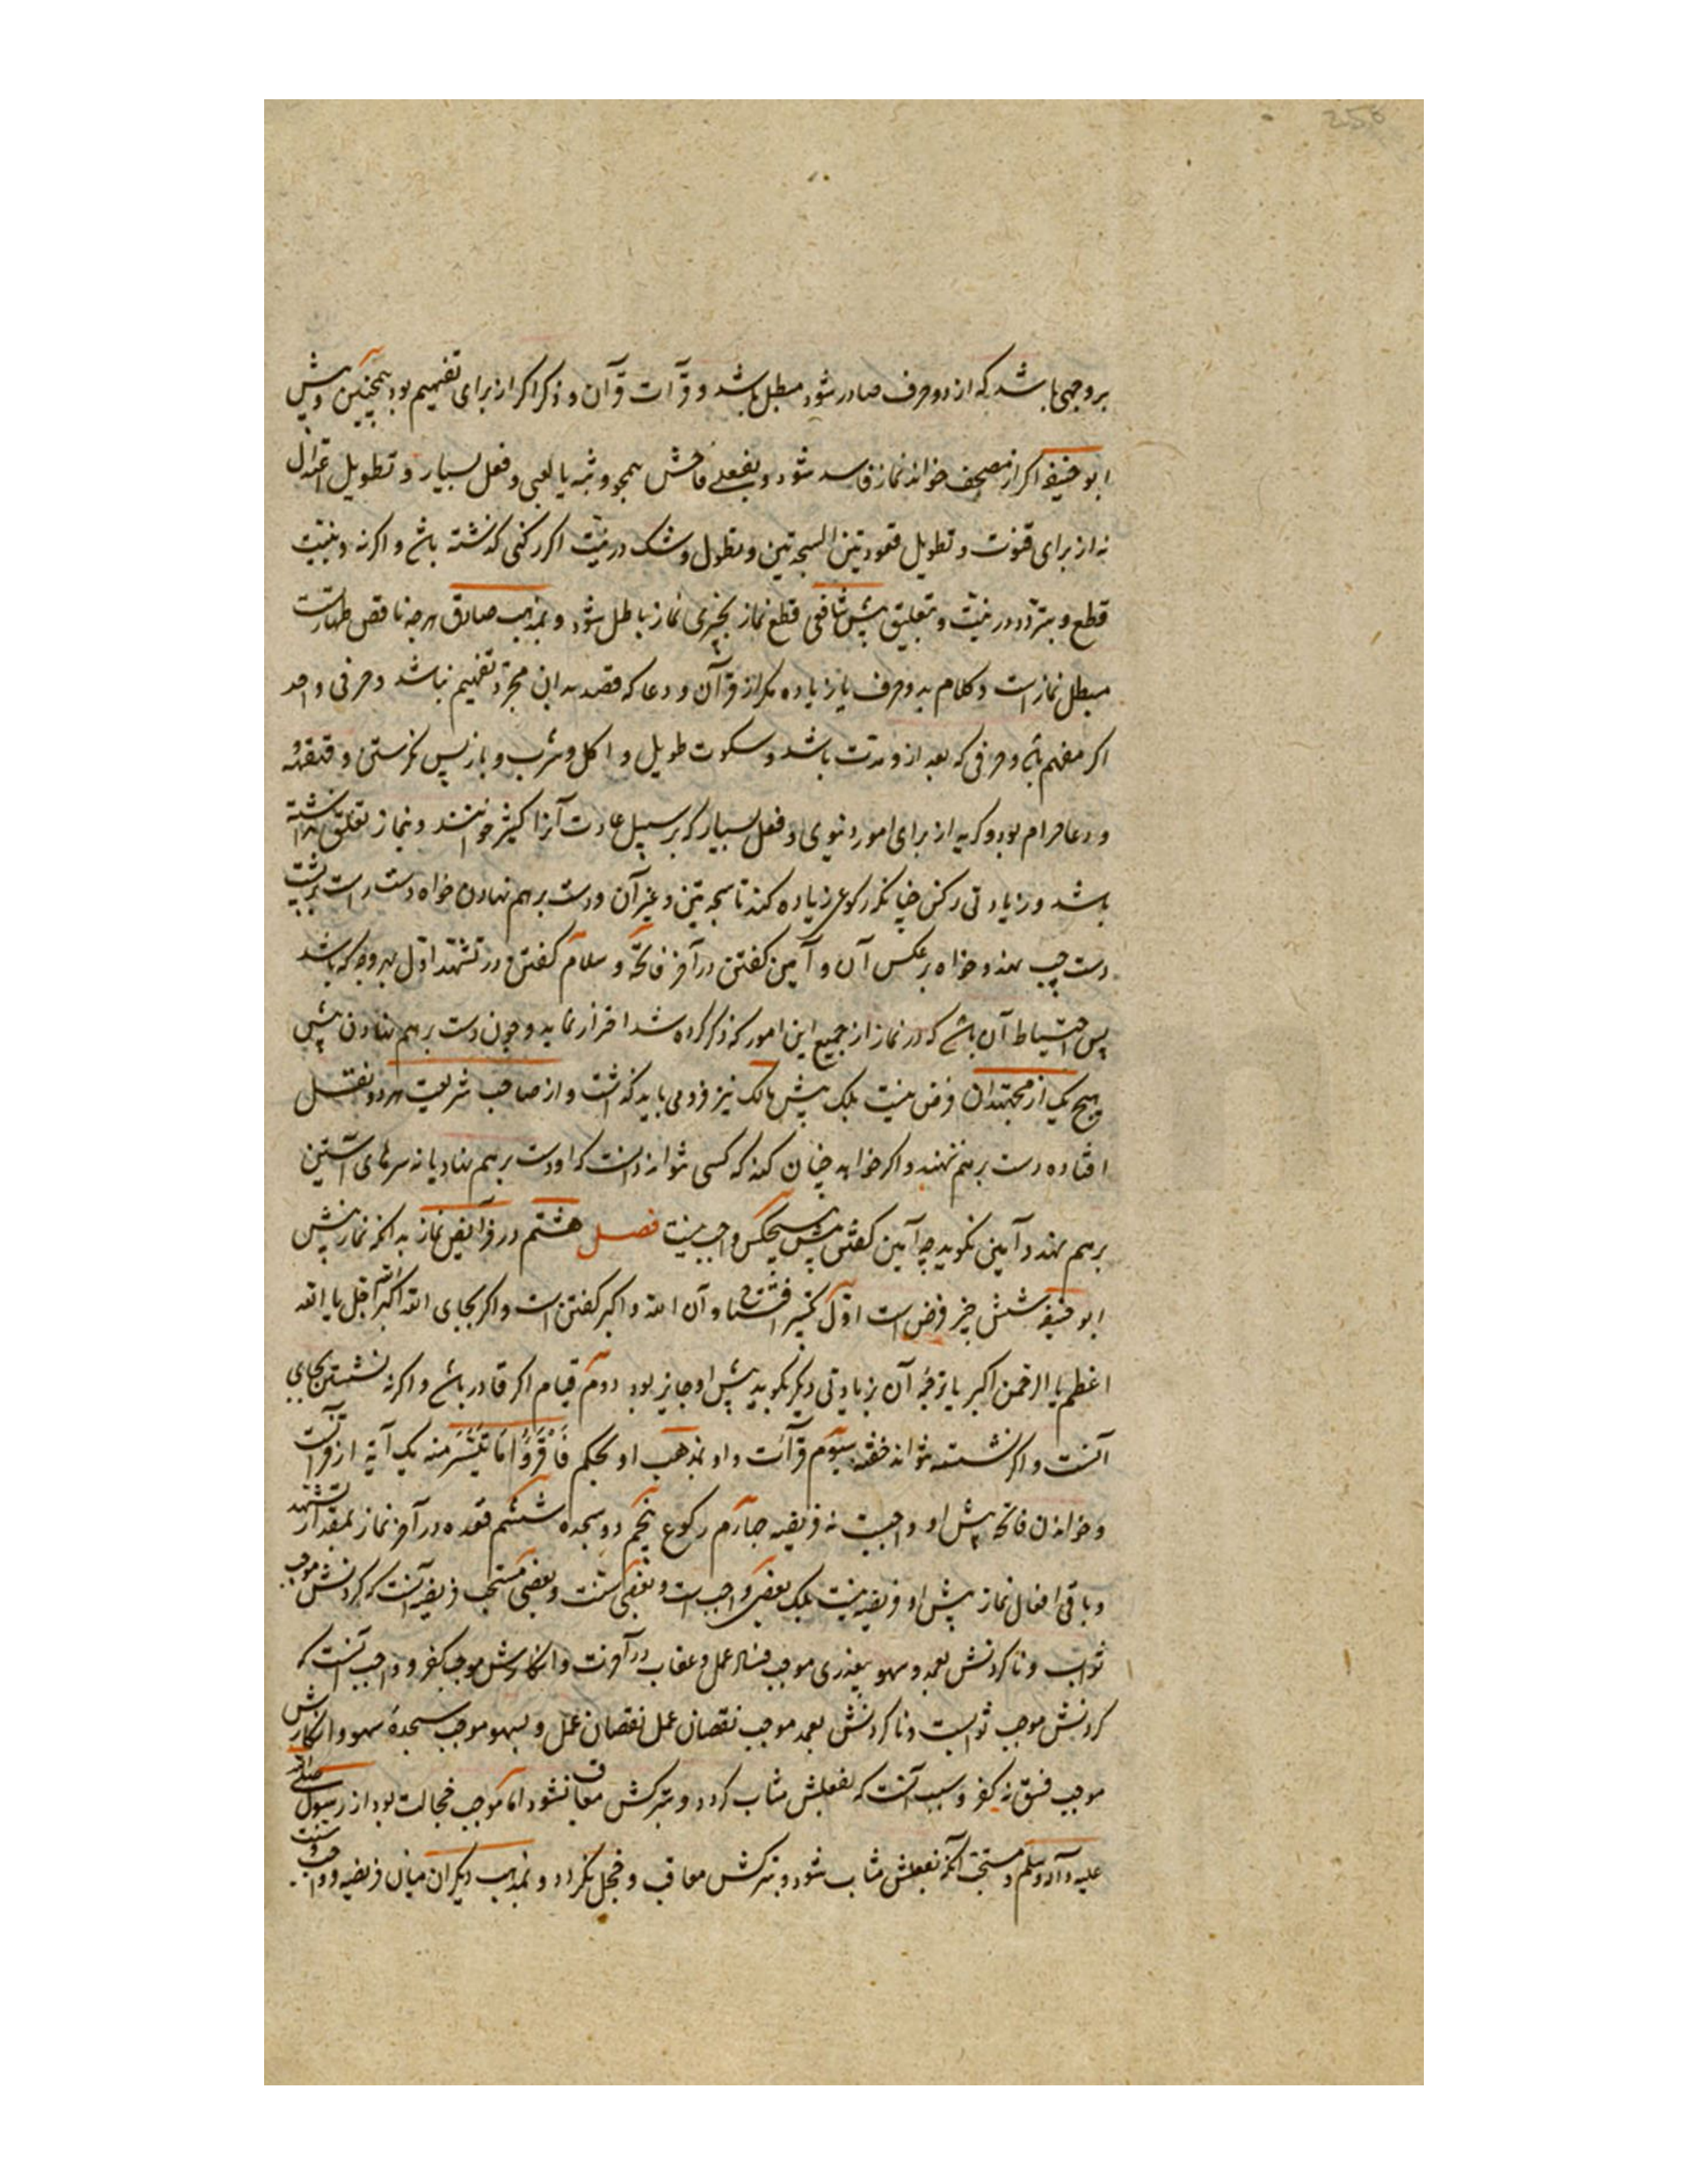 بر وجهی باشد که از دو حرف صادر شود مبطل باشد و قرآت قرآن و ذکر اکر از برای تفهیم بود همچنین و پیش
ابو حنیفه اکر از مصحف خواند نماز فاسد شود و بفعلی فاحش همچو وثبه یا لعبی و فعل بسیار و تطویل اعتدال
نه از برای قنوت و تطویل قعود بین السجدتین و بطول و شک در نیت اکر رکنی کذشته باشد و اکرنه و بنیت
قطع و بتردد در نیت و تعلیق پیش شافعی قطع نماز بچیزی نماز باطل شود و بمذهب صادق هرچه ناقض طهارتست
مبطل نماز است و کلام بدو حرف یا زیاده مکر از قرآن و دعا که قصد بدان مجرد تفهیم نباشد و حرفی واحد
اکر مفهم باشد و حرفی که بعد از و مدت باشد و سکوت طویل و اکل و شرب و باز پس نکرستن و قهقهه
و دعا حرام بود و کریه از برای امور دنیوی و فعل بسیار که بر سبیل عادت آنرا کثیر خوانند و بنماز تعلق نداشته
باشد و زیادتی رکن چنانکه رکوعی زیاده کند تا سجدتین و غیر آن و دست بر هم نهادن خواه دست راست بر پشت
دست چپ نهد و خواه بر عکس آن و آمین کفتن در آخر فاتحه و سلام کفتن در تشهد اول بهر وجه که باشد
پس احتیاط آن باشد که در نماز از جمیع این امور که ذکر کرده شد احتراز نماید و چون دست بر هم نهادن پیش
هیچ یک از مجتهدان فرض نیست بلکه پیش مالک نیز فرو می باید کذاشت و از صاحب شریعت هر دو نقل
افتاده دست بر هم ننهند و اکر خواهد چنان کند که کسی نتواند دانست که او دست بر هم نهاد یا نه سرهای آستین
بر هم نهد و آمین نکوید چه آمین کفتن پیش هیچکس واجب نیست فصل هشتم در فرآیض نماز بدانکه نماز پیش
ابو حنیفه شش چیز فرض است اول تکبیر افتتاح و آن الله اکبر کفتن است و اکر بجای الله اکبر الله اجل یا الله
اعظم یا الرحمن اکبر یا ترجمه آن بزیادتی دیکر بکوید پیش او جایز بود دوم قیام اکر قادر باشد و اکرنه نشستن بجای
آنست و اکر نشسته نتواند خفته سیوم قرآت و او بمذهب او بحکم فَاقْرَؤُا مَا تَیَسَّرَ منه یک آیة از قرآنست
و خواندن فاتحه پیش او واجبست نه فریضه چهارم رکوع پنجم دو سجده ششم قعده در آخر نماز بمقدار تشهد
و باقی افعال نماز پیش او فریضه نیست بلکه بعضی واجب است و بعضی سنت و بعضی مستحب فریضه آنست که کردنش موجب
ثواب و ناکردنش بعمد و سهو بیعذری موجب فساد عمل و عقاب در آخرت و انکارش موجب کفر و واجب آنست که
کردنش موجب ثوابست و ناکردنش بعمد موجب نقصان عمل نقصان عمل و بسهو موجب سجدهٔ سهو و انکارش
موجب فسق نه کفر و آنست که بفعلش مثاب کردد و بترکش معاقب نشود اما موجب خجالت بود از رسول صلی الله
علیه و آله و سلم و مستحب آنکه بفعلش مثاب شود و بترکش معاقب و خجل نکردد و بمذهب دیکران میان فریضه و واجب و سنت